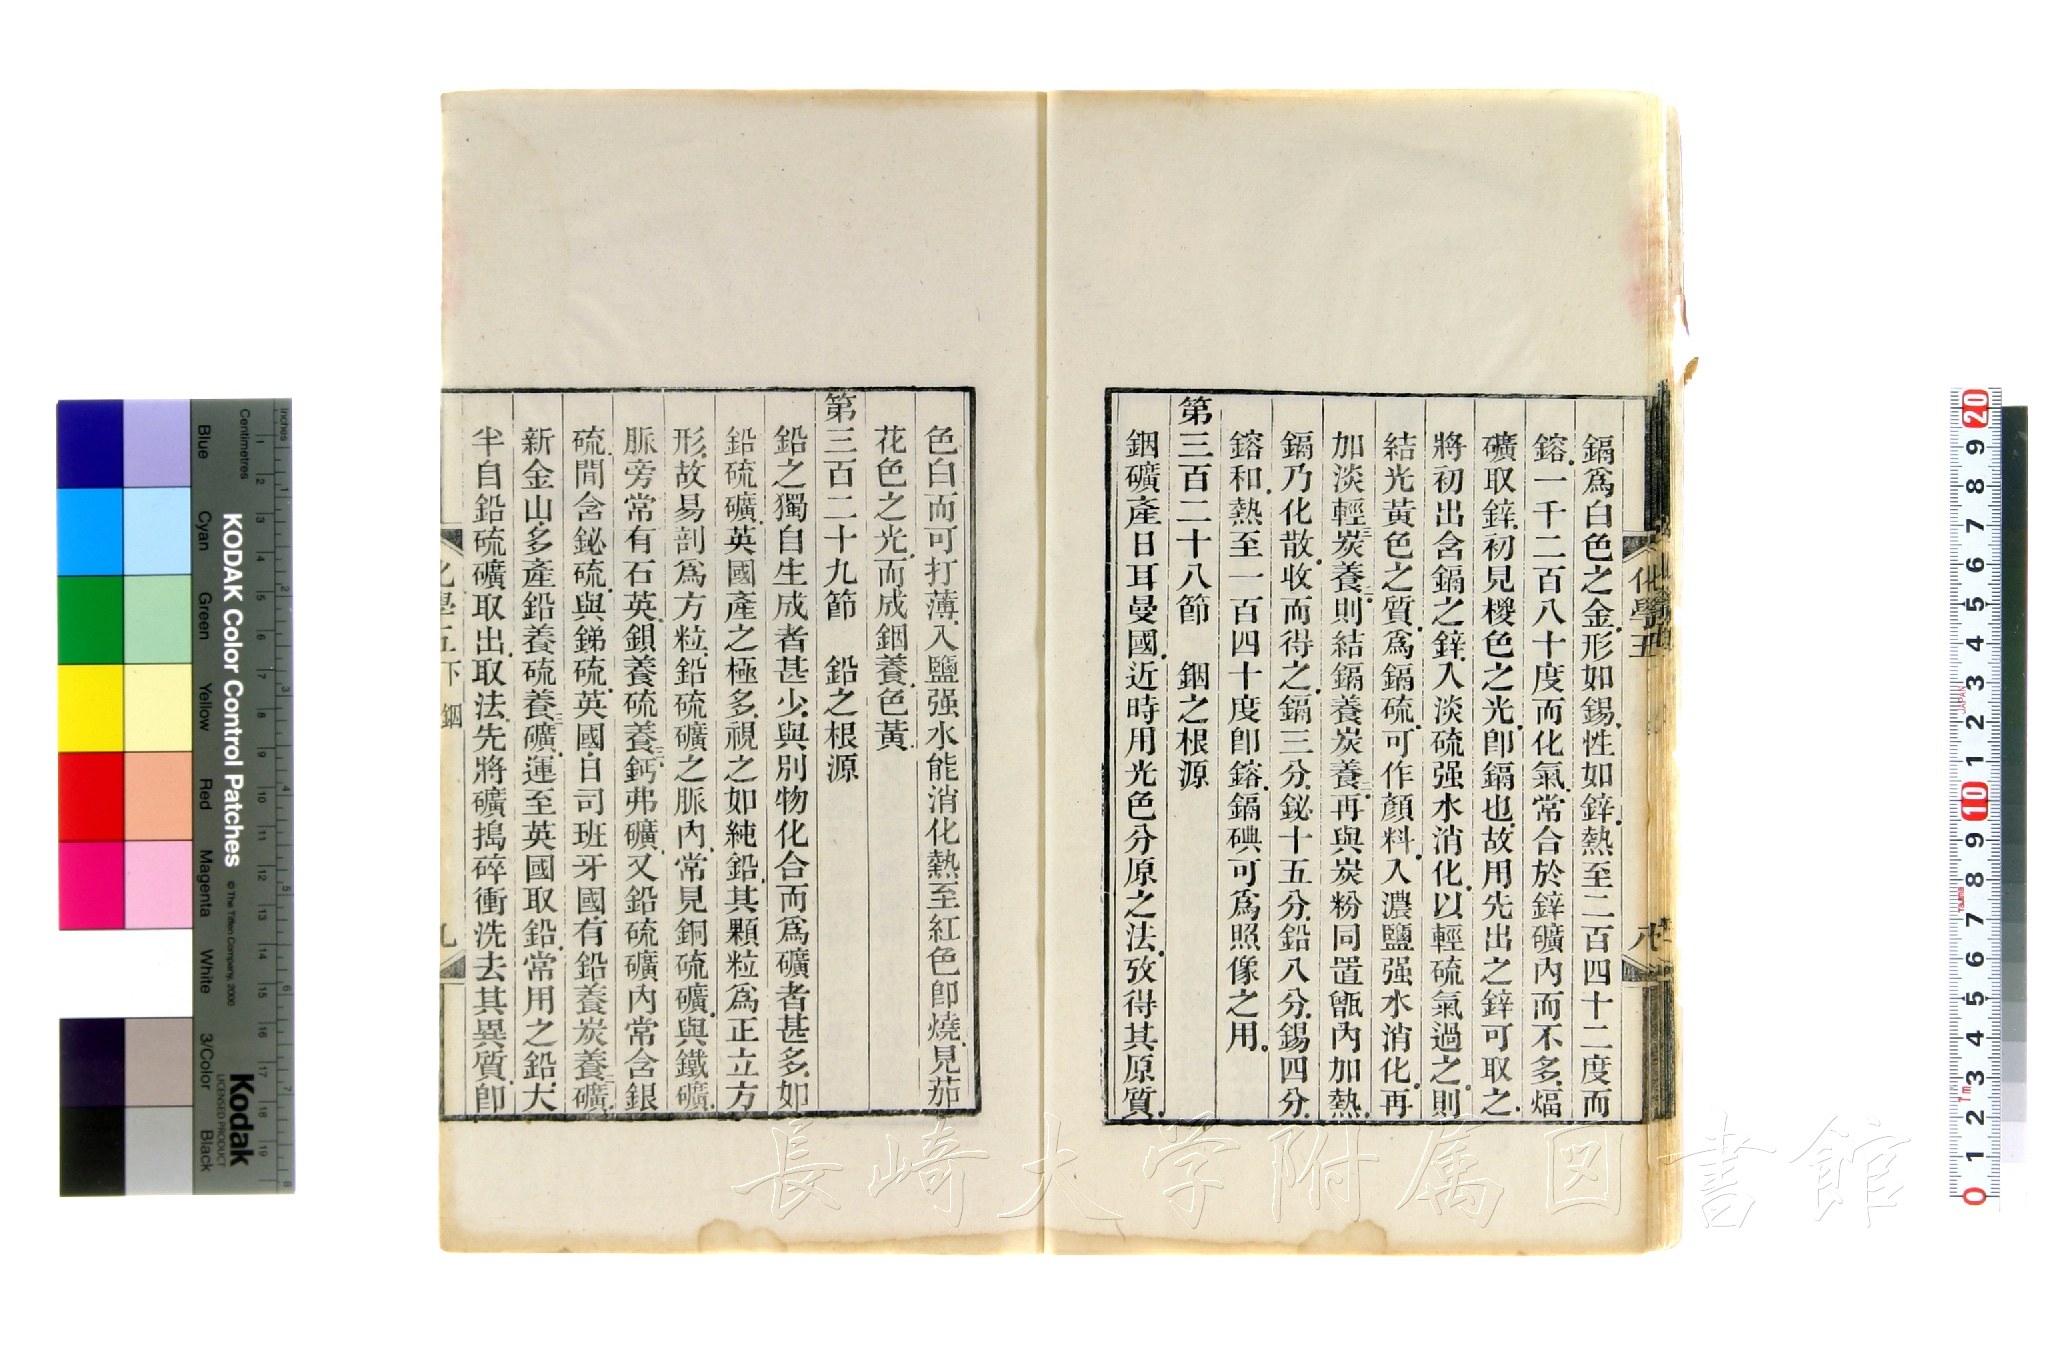 鎘爲白色之金形如錫性如鋅熱至二百四十二度而
鎔一千二百八十度而化氣常合於鋅礦內而不多煏
礦取鋅初見椶色之光卽鎘也故用先出之鋅可取之
將初出含鎘之鋅入淡硫强水消化以輕硫氣過之則
結光黃色之質爲鎘硫可作顏料入濃鹽强水消化再
加淡輕三炭養二則結鎘養炭養二再與炭粉同置甑內加熱
鎘乃化散收而得之鎘三分鉍十五分鉛八分錫四分
鎔和熱至一百四十度卽鎔鎘碘可爲照像之用
第三百二十八節 鏍之根源
鏍礦產日耳曼國近時用光色分原之法攷得其原質
化學五
八
色白而可打薄入鹽强水能消化熱至紅色卽燒見茄
花色之光而成鏍養色黃
第三百二十九節 鉛之根源
鉛之獨自生成者甚少與別物化合而爲礦者甚多如
鉛硫礦英國產之極多視之如純鉛其顆粒爲正立方
形故易剖爲方粒鉛硫礦之脈內常見銅硫礦與鐵礦
脈旁常有石英鋇養硫養三鈣弗礦又鉛硫礦內常含銀
硫間含鉍硫與銻硫英國日司班牙國有鉛養炭養二礦
新金山多產鉛養硫養三礦運至英國取鉛常用之鉛大
半自鉛硫礦取出取法先將礦搗碎衝洗去其異質卽
化學五下
九
KODAK Color Control Patches
© The Tiffen Company, 2000
Kodak
LICENSED PRODUCT
Inches
Centimetres
Blue
Cyan
Green
Yellow
Red
Magenta
White
3/Color
Black
長崎大学附属図書館